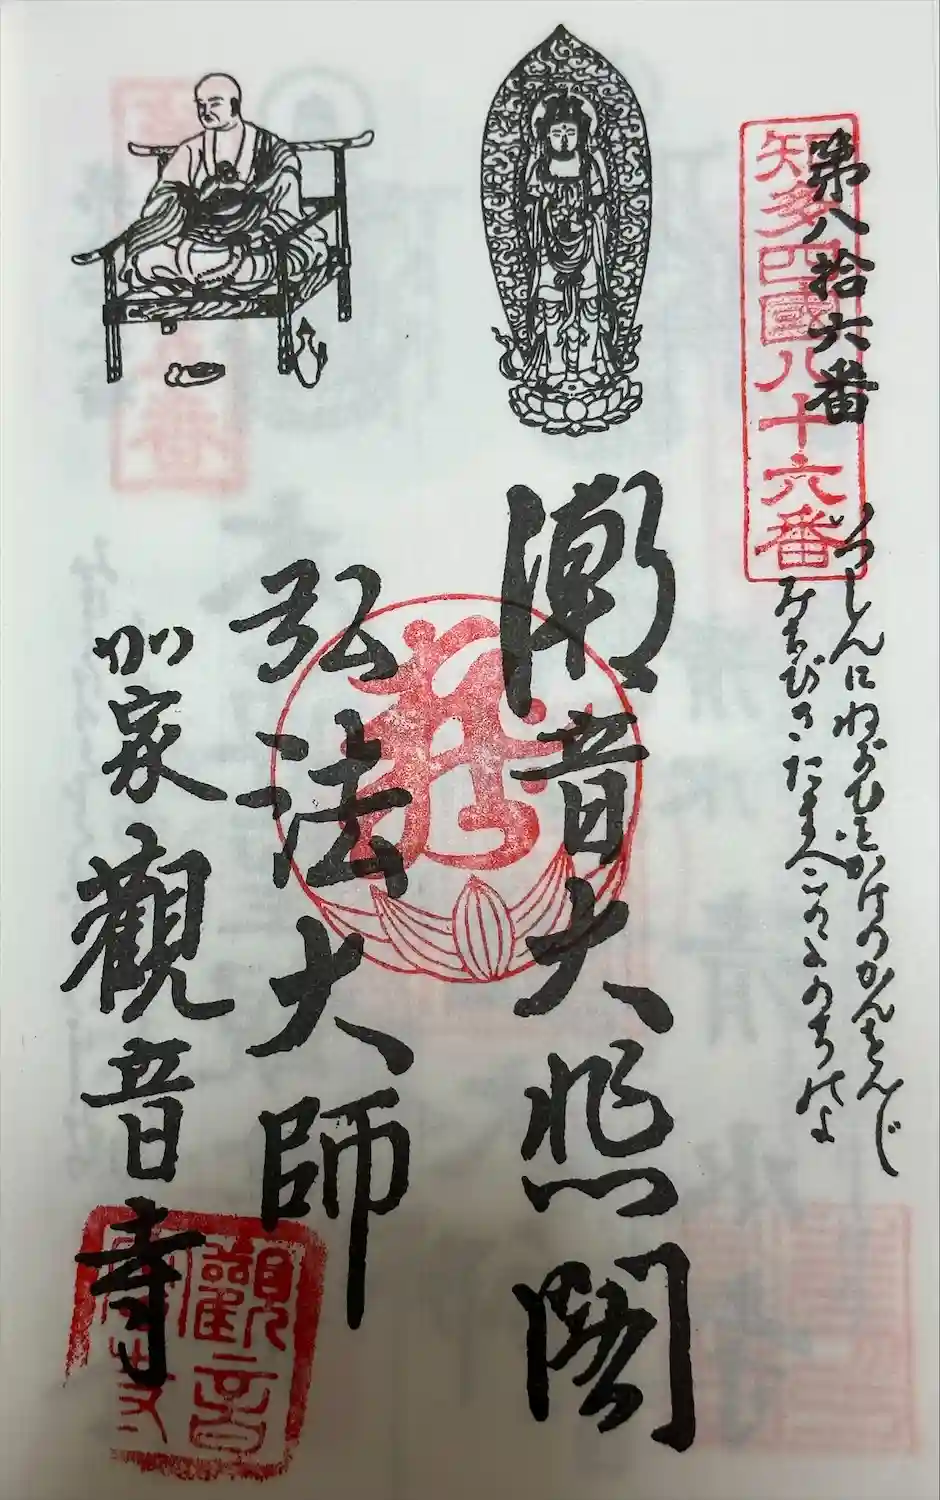 第八拾六番
知多四國八十六番
いつしんにねがひをかけのかんをんじ
みちびきたまへこのよのちのよ
潮音大悲閣
弘法大師
加家觀音寺
觀音